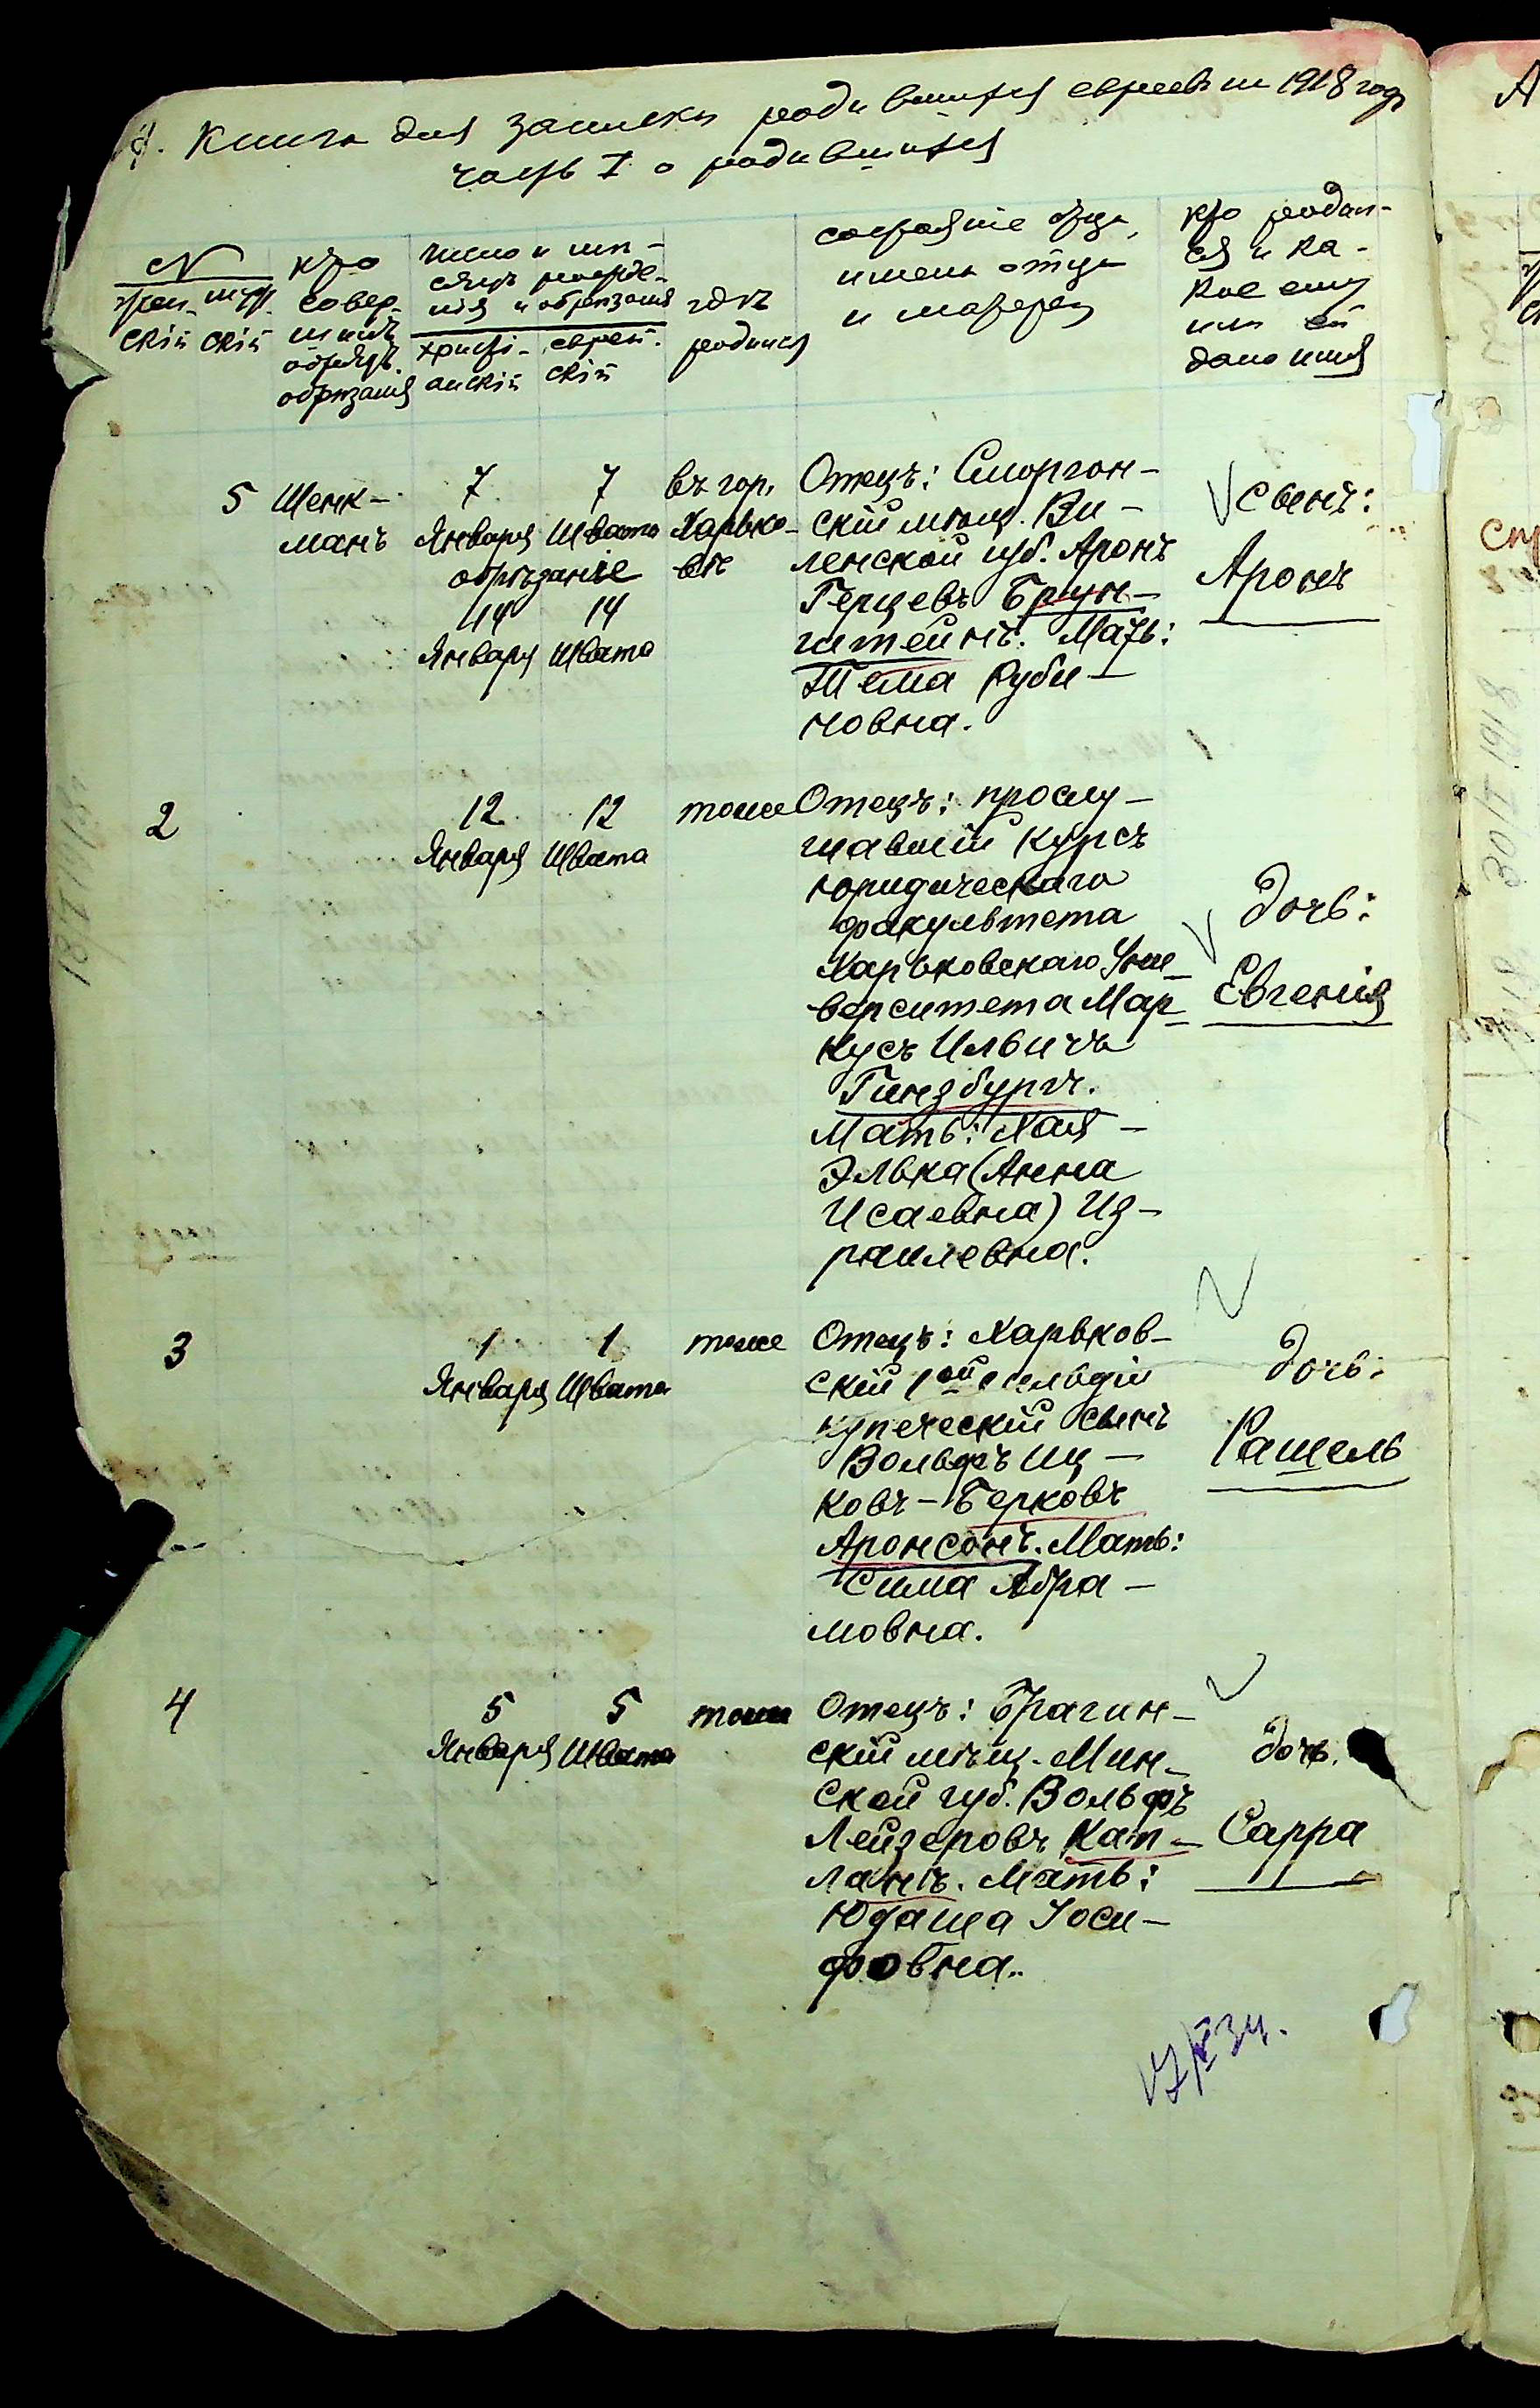 Книга для записки родившихся евреевъ на 1918 годъ
часть I о родившихся
N
жен- муж-
скій скій
кто
совер-
шилъ
обрядъ
обрѣзанія
число и мѣ-
сяцъ рожде-
нія и обрѣзанія
христі-
анскій
еврей-
скій
гдѣ
родился
состояніе отца,
имена отца
и матери
кто родил-
ся и ка-
кое ему
или ей
дано имя
5
Шенк-
манъ
7 7
Января Швата
обрѣзаніе
14 14
Января Швата
въ гор.
Харько-
вѣ
Отецъ: Сморгон-
скій мѣщ. Ви-
ленской губ. Аронъ
Герцевъ Брун-
штейнъ. Мать:
Тема Руби-
новна.
сынъ:
Аронъ
2
12 12
Января Швата
тоже
Отецъ: прослу-
шавшій курсъ
юридическаго
факультета
Харьковскаго Уни-
верситета Мар-
кусъ Ильичъ
Гинзбургъ.
Мать: Хая-
Элька (Анна
Исаевна) Из-
раилевна.
дочь:
Евгенія
3
1 1
Января Швата
тоже
Отецъ: Харьков-
скій 1ой гильдіи
купеческій сынъ
Вольфъ Иц-
ковъ-Берковъ
Аронсонъ. Мать:
Сима Абра-
мовна.
дочь:
Рашель
4
5 5
Января Швата
тоже
Отецъ: Брагин-
скій мѣщ. Мин-
ской губ. Вольфъ
Лейзеровъ Кап-
ланъ. Мать:
Юдаша Іоси-
фовна.
дочь.
Сарра